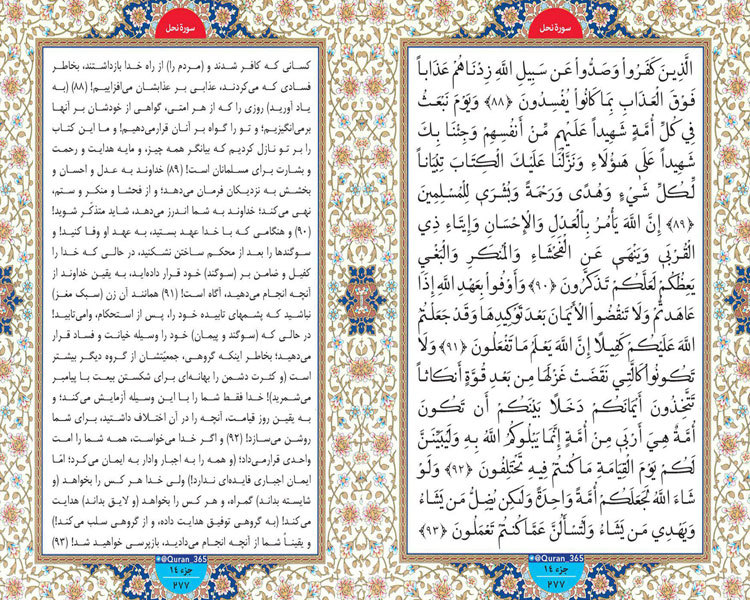 سورهٔ نحل
الَّذِينَ كَفَرُواْ وَصَدُّواْ عَن سَبِيلِ اللَّهِ زِدْنَاهُمْ عَذَاباً
فَوْقَ الْعَذَابِ بِمَا كَانُواْ يُفْسِدُونَ ﴿۸۸﴾ وَيَوْمَ نَبْعَثُ
فِي كُلِّ أُمَّةٍ شَهِيداً عَلَيْهِم مِّنْ أَنفُسِهِمْ وَجِئْنَا بِكَ
شَهِيداً عَلَى هَـؤُلَاءِ وَنَزَّلْنَا عَلَيْكَ الْكِتَابَ تِبْيَاناً
لِّكُلِّ شَيْءٍ وَهُدًى وَرَحْمَةً وَبُشْرَى لِلْمُسْلِمِينَ
﴿۸۹﴾ إِنَّ اللَّهَ يَأْمُرُ بِالْعَدْلِ وَالْإِحْسَانِ وَإِيتَاءِ ذِي
الْقُرْبَى وَيَنْهَى عَنِ الْفَحْشَاءِ وَالْمُنكَرِ وَالْبَغْيِ
يَعِظُكُمْ لَعَلَّكُمْ تَذَكَّرُونَ ﴿۹۰﴾ وَأَوْفُواْ بِعَهْدِ اللَّهِ إِذَا
عَاهَدتُّمْ وَلَا تَنقُضُواْ الْأَيْمَانَ بَعْدَ تَوْكِيدِهَا وَقَدْ جَعَلْتُمُ
اللَّهَ عَلَيْكُمْ كَفِيلاً إِنَّ اللَّهَ يَعْلَمُ مَا تَفْعَلُونَ ﴿۹۱﴾ وَلَا
تَكُونُواْ كَالَّتِي نَقَضَتْ غَزْلَهَا مِن بَعْدِ قُوَّةٍ أَنكَاثاً
تَتَّخِذُونَ أَيْمَانَكُمْ دَخَلاً بَيْنَكُمْ أَن تَكُونَ
أُمَّةٌ هِيَ أَرْبَى مِنْ أُمَّةٍ إِنَّمَا يَبْلُوكُمُ اللَّهُ بِهِ وَلَيُبَيِّنَنَّ
لَكُمْ يَوْمَ الْقِيَامَةِ مَا كُنتُمْ فِيهِ تَخْتَلِفُونَ ﴿۹۲﴾ وَلَوْ
شَاءَ اللَّهُ لَجَعَلَكُمْ أُمَّةً وَاحِدَةً وَلَكِن يُضِلُّ مَن يَشَاءُ
وَيَهْدِي مَن يَشَاءُ وَلَتُسْأَلُنَّ عَمَّا كُنتُمْ تَعْمَلُونَ ﴿۹۳﴾
@Quran_365
جزء ۱۴
۲۷۷
سورهٔ نحل
کسانی که کافر شدند و (مردم را) از راه خدا بازداشتند، بخاطر
فسادی که می‌کردند، عذابی بر عذابشان می‌افزاییم! (۸۸) (به
یاد آورید) روزی را که از هر امتی، گواهی از خودشان بر آنها
برمی‌انگیزیم؛ و تو را گواه بر آنان قرارمی‌دهیم! و ما این کتاب
را بر تو نازل کردیم که بیانگر همه چیز، و مایه هدایت و رحمت
و بشارت برای مسلمانان است! (۸۹) خداوند به عدل و احسان و
بخشش به نزدیکان فرمان می‌دهد؛ و از فحشا و منکر و ستم،
نهی می‌کند؛ خداوند به شما اندرز می‌دهد، شاید متذکّر شوید!
(۹۰) و هنگامی که با خدا عهد بستید، به عهد او وفا کنید! و
سوگندها را بعد از محکم ساختن نشکنید، در حالی که خدا را
کفیل و ضامن بر (سوگند) خود قرار داده‌اید، به یقین خداوند از
آنچه انجام می‌دهید، آگاه است! (۹۱) همانند آن زن (سبک مغز)
نباشید که پشمهای تابیده خود را، پس از استحکام، وامی‌تابید!
در حالی که (سوگند و پیمان) خود را وسیله خیانت و فساد قرار
می‌دهید؛ بخاطر اینکه گروهی، جمعیّتشان از گروه دیگر بیشتر
است (و کثرت دشمن را بهانه‌ای برای شکستن بیعت با پیامبر
می‌شمرید)! خدا فقط شما را با این وسیله آزمایش می‌کند؛ و
به یقین روز قیامت، آنچه را در آن اختلاف داشتید، برای شما
روشن می‌سازد! (۹۲) و اگر خدا می‌خواست، همه شما را امت
واحدی قرارمی‌داد؛ (و همه را به اجبار وادار به ایمان می‌کرد؛ امّا
ایمان اجباری فایده‌ای ندارد!) ولی خدا هر کس را بخواهد (و
شایسته بداند) گمراه، و هر کس را بخواهد (و لایق بداند) هدایت
می‌کند! (به گروهی توفیق هدایت داده، و از گروهی سلب می‌کند!)
و یقیناً شما از آنچه انجام می‌دادید، بازپرسی خواهید شد! (۹۳)
@Quran_365
جزء ۱۴
۲۷۷